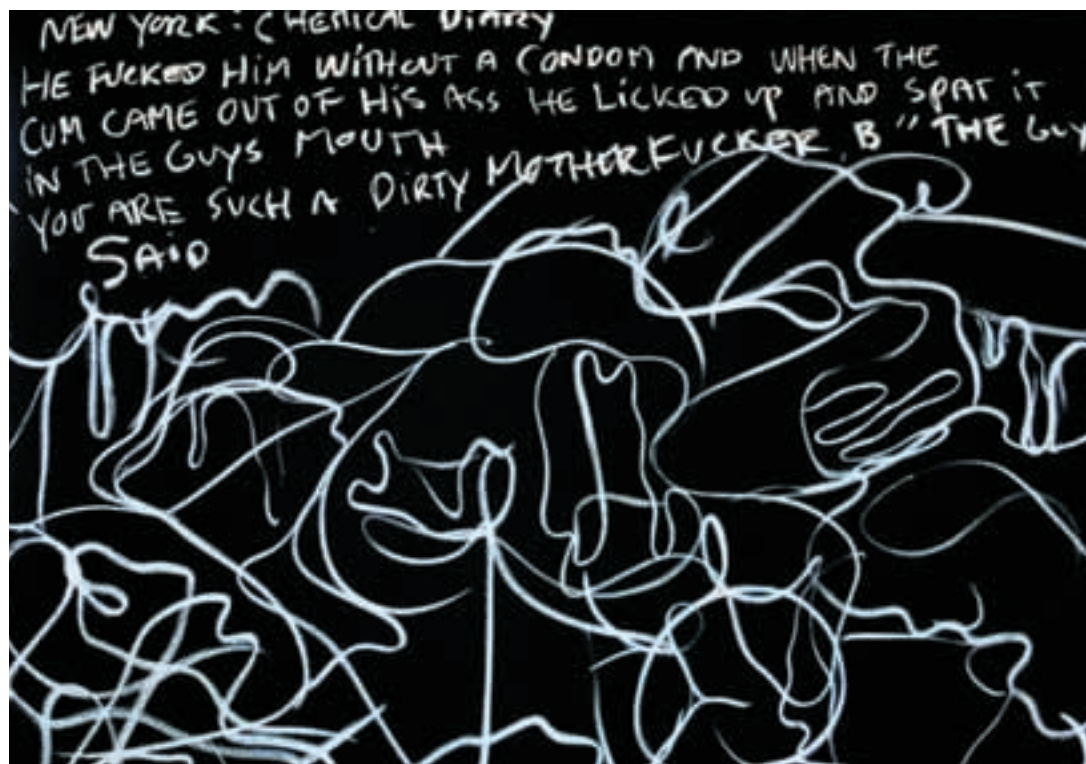 NEW YORK : CHEMICAL DIARY
HE FUCKED HIM WITHOUT A CONDOM AND WHEN THE
CUM CAME OUT OF HIS ASS HE LICKED UP AND SPAT IT
IN THE GUYS MOUTH
YOU ARE SUCH A DIRTY MOTHERFUCKER B" THE GUY
SAID